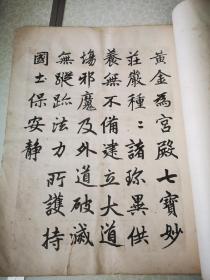 黃金為宮殿七寶妙
莊嚴種〻諸珎異供
養無不備建立大道
塲邪魔及外道破滅
無蹤跡法力所護持
國土保安静